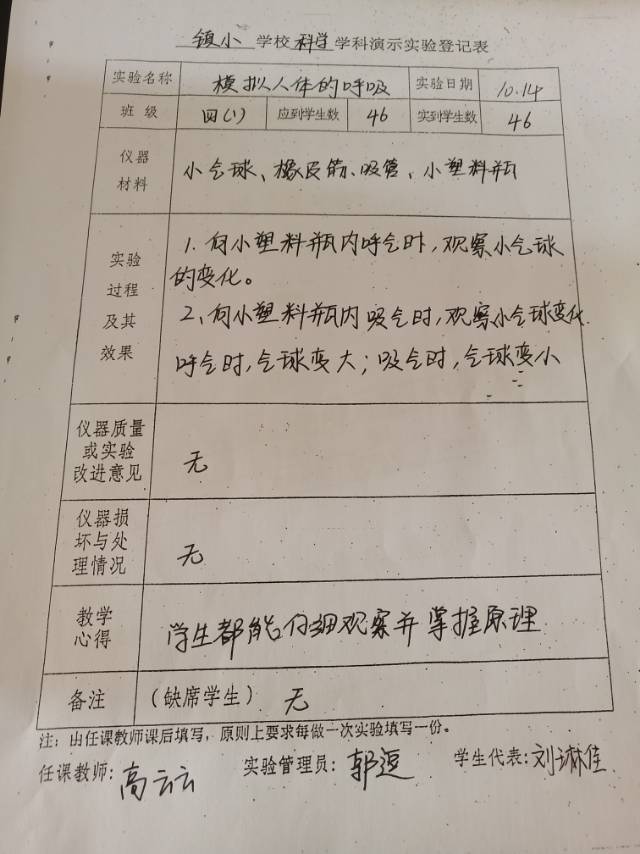 镇小 学校 科学 学科演示实验登记表
实验名称 模拟人体的呼吸 实验日期 10.14
班 级 四(1) 应到学生数 46 实到学生数 46
仪器
材料
小气球、橡皮筋、吸管、小塑料瓶
实验
过程
及其
效果
1. 向小塑料瓶内呼气时,观察小气球
的变化。
2、向小塑料瓶内吸气时,观察小气球变化
呼气时,气球变大;吸气时,气球变小
仪器质量
或实验
改进意见
无
仪器损
坏与处
理情况
无
教学
心得
学生都能仔细观察并掌握原理
备注 (缺席学生) 无
注:由任课教师课后填写,原则上要求每做一次实验填写一份。
任课教师:高云云 实验管理员:郭逗 学生代表:刘琳佳